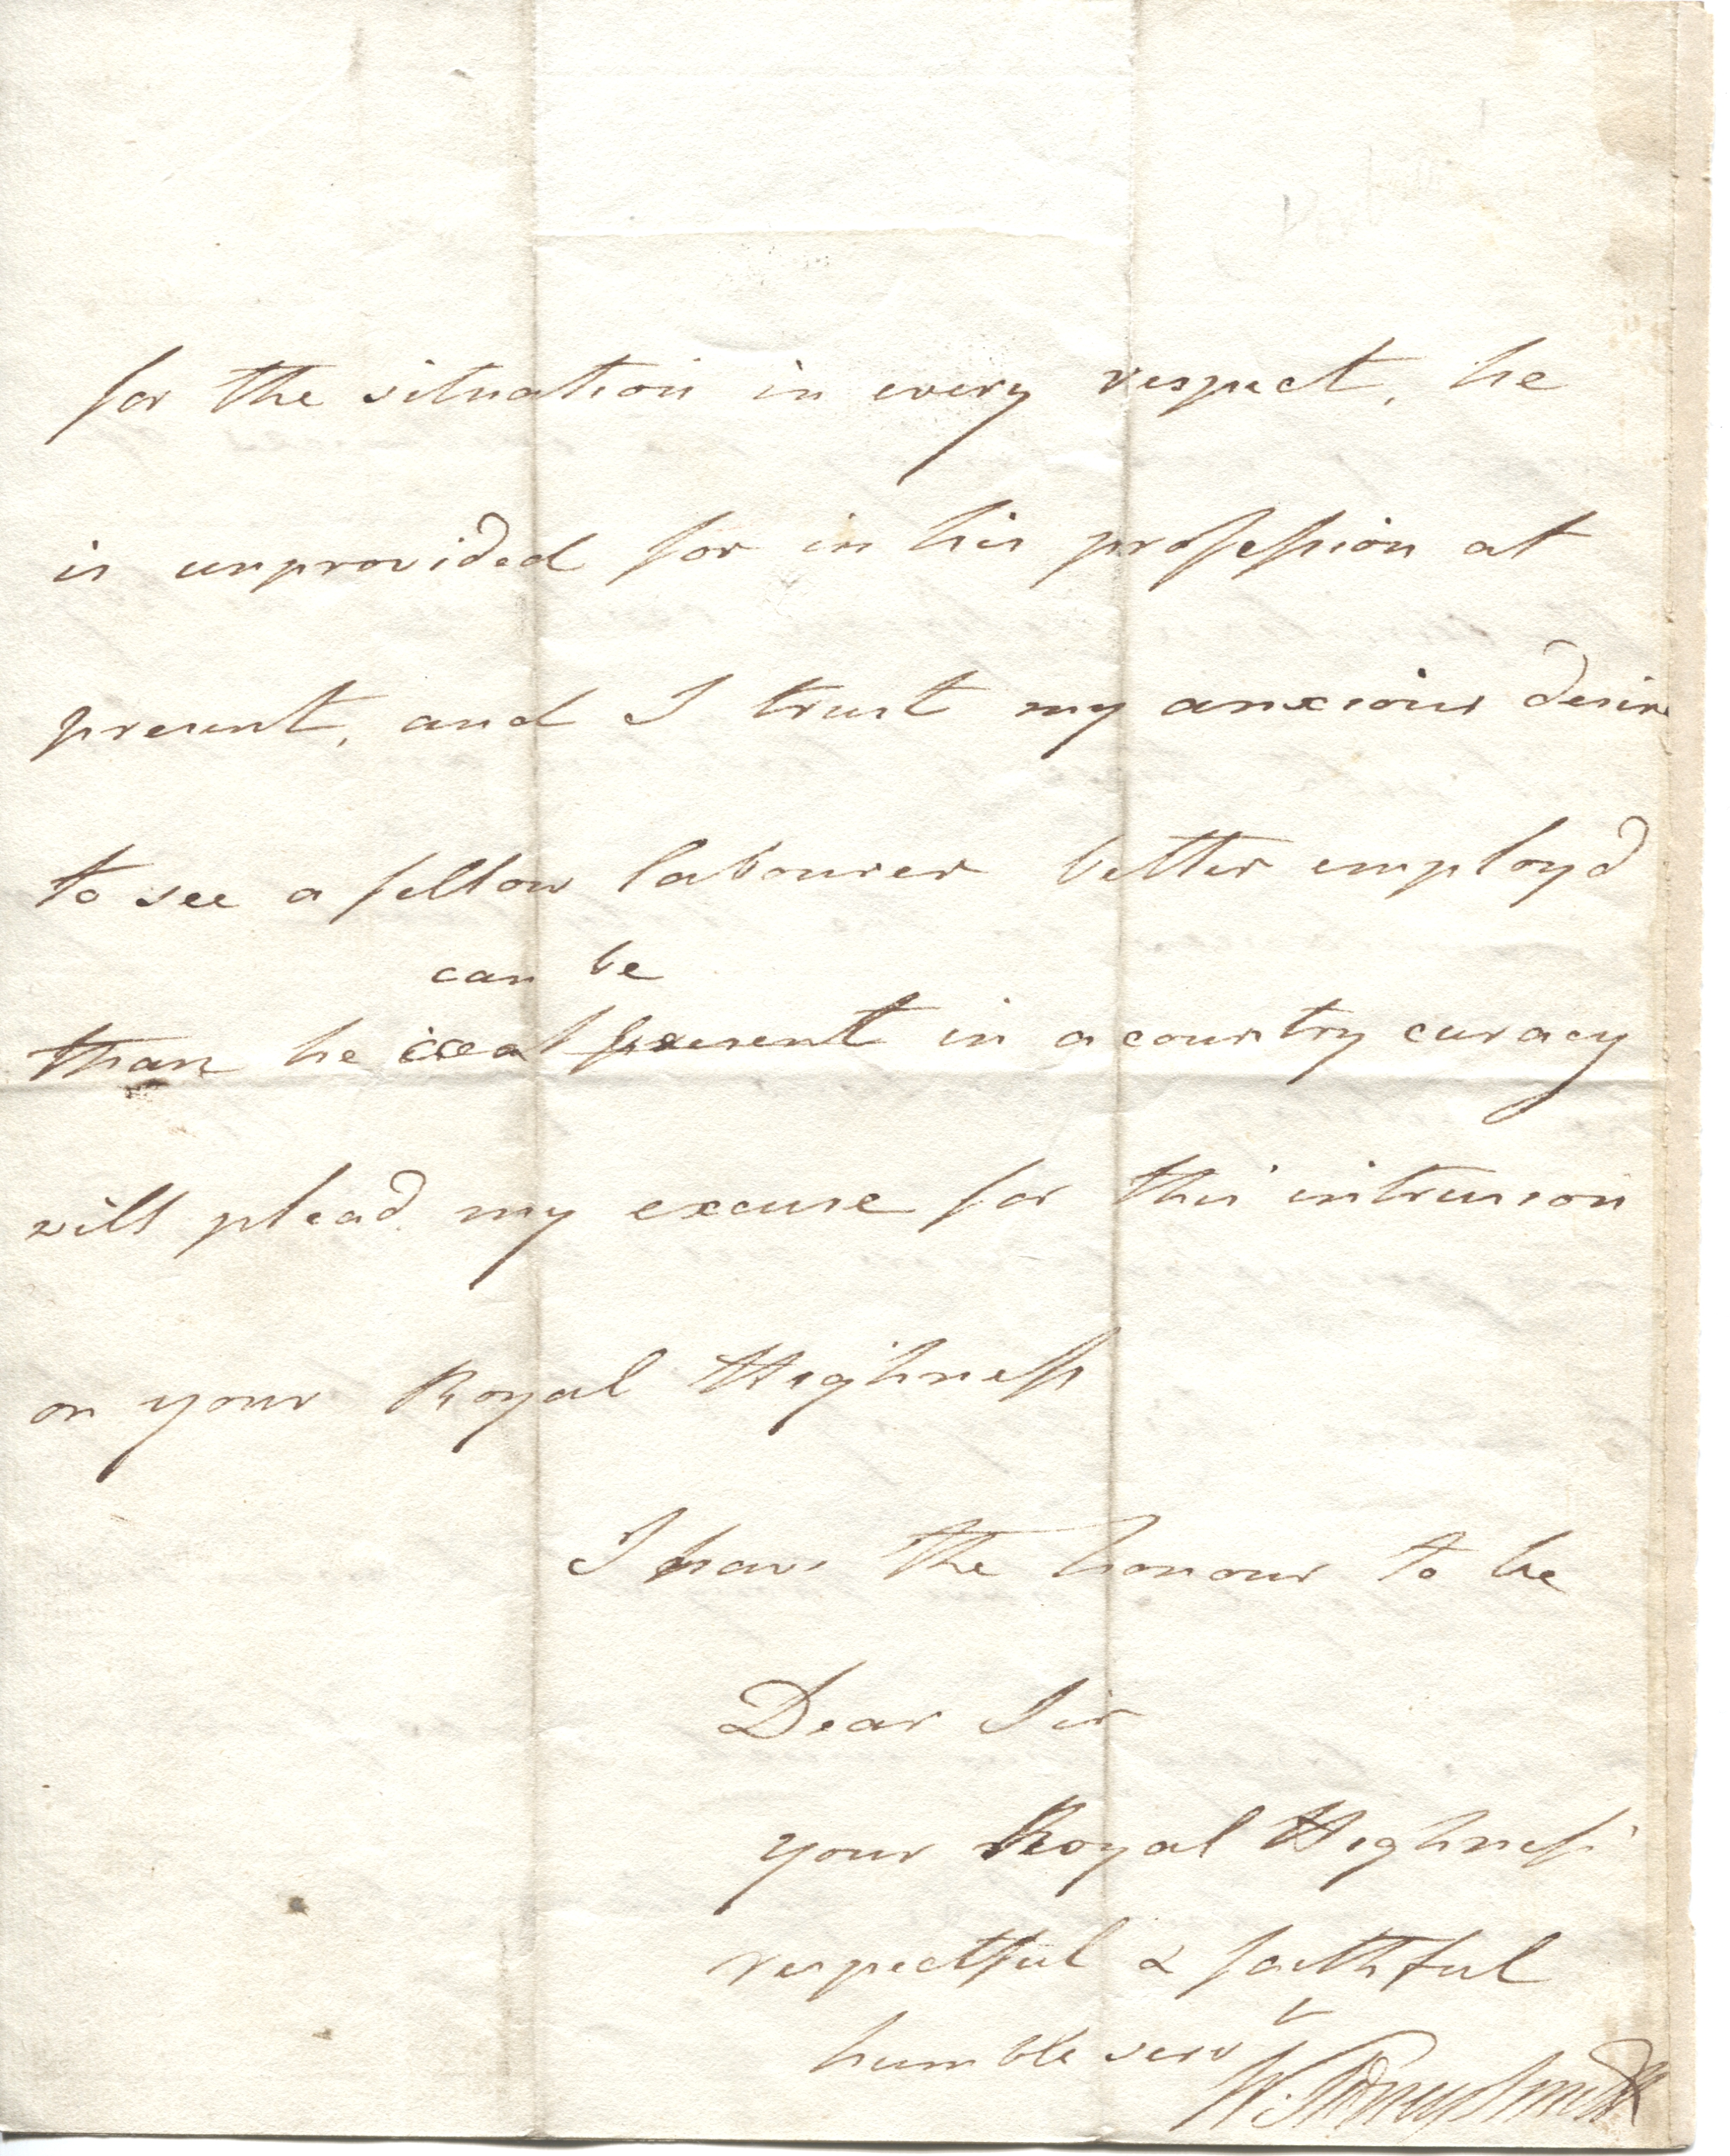 for the situation in every respect, he
is unprovided for in his profeſsion at
present, and I trust my anxious desire
to see a fellow labourer better employd
can be
than he is at present in a country curacy
will plead my excuse for this intrusion
on your Royal Highneſs
I have the honour to be
Dear Sir
your Royal Highneſs'
respectful & faithful
humble servt
W. Sidney Smith